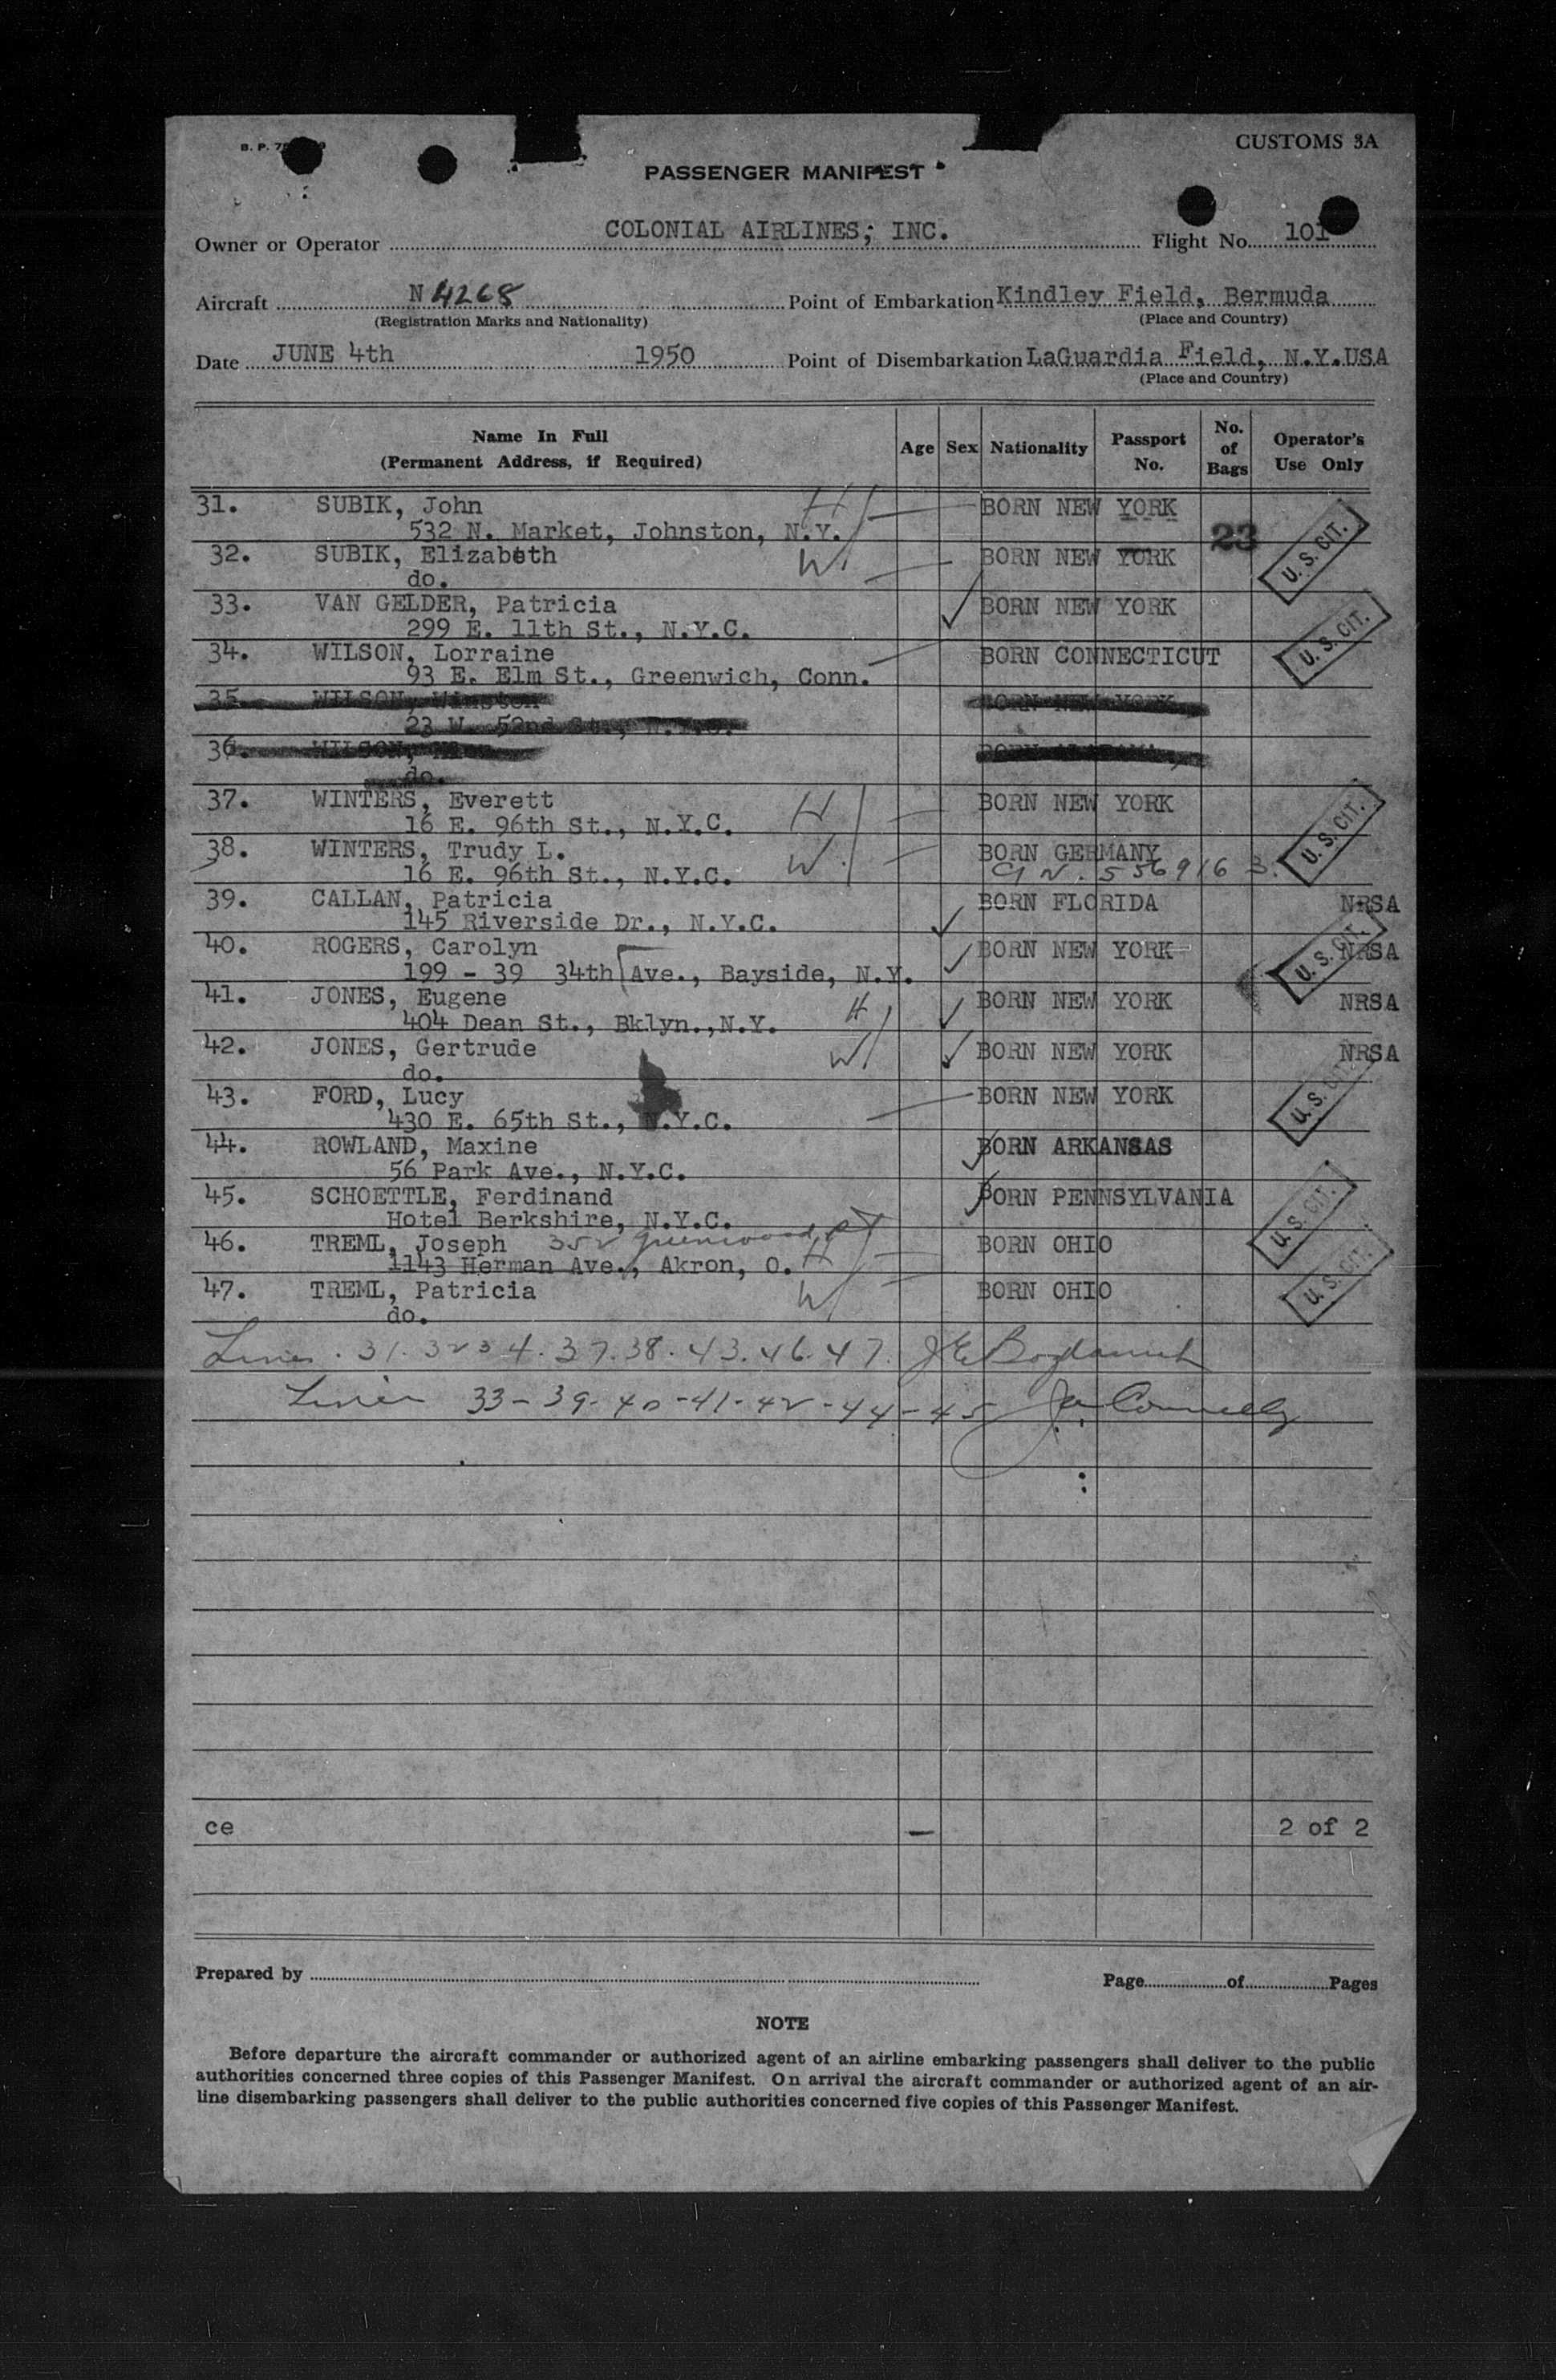 B. P.
CUSTOMS 3A
PASSENGER MANIFEST
Owner or Operator COLONIAL AIRLINES; INC. Flight No. 101
Aircraft N 4268 Point of Embarkation Kindley Field, Bermuda
(Registration Marks and Nationality) (Place and Country)
Date JUNE 4th 1950 Point of Disembarkation LaGuardia Field, N.Y.USA
(Place and Country)
Name In Full (Permanent Address, if Required) Age Sex Nationality Passport No. No. of Bags Operator's Use Only
31. SUBIK, John H BORN NEW YORK
532 N. Market, Johnston, N.Y. 23 U. S. CIT.
32. SUBIK, Elizabeth W BORN NEW YORK
do.
33. VAN GELDER, Patricia BORN NEW YORK
299 E. 11th St., N.Y.C. U. S. CIT.
34. WILSON, Lorraine BORN CONNECTICUT
93 E. Elm St., Greenwich, Conn.
35. WILSON, Winston BORN NEW YORK
23 W. 52nd St., N.Y.C.
36. WILSON, BORN ALABAMA
do.
37. WINTERS, Everett H BORN NEW YORK
16 E. 96th St., N.Y.C. U. S. CIT.
38. WINTERS, Trudy L. W BORN GERMANY
16 E. 96th St., N.Y.C. 556916 3.
39. CALLAN, Patricia BORN FLORIDA NRSA
145 Riverside Dr., N.Y.C.
40. ROGERS, Carolyn BORN NEW YORK NRSA
199 - 39 34th Ave., Bayside, N.Y. U. S. CIT.
41. JONES, Eugene H BORN NEW YORK NRSA
404 Dean St., Bklyn.,N.Y.
42. JONES, Gertrude W BORN NEW YORK NRSA
do.
43. FORD, Lucy BORN NEW YORK
430 E. 65th St., N.Y.C. U. S. CIT.
44. ROWLAND, Maxine BORN ARKANSAS
56 Park Ave., N.Y.C.
45. SCHOETTLE, Ferdinand BORN PENNSYLVANIA
Hotel Berkshire, N.Y.C. U. S. CIT.
46. TREML, Joseph 352 Greenwood BORN OHIO
1143 Herman Ave., Akron, O. H
47. TREML, Patricia W BORN OHIO U. S. CIT.
do.
Lines . 31. 32 34. 37. 38. 43. 46. 47.
Lines 33 - 39 - 40 - 41 - 42 - 44 - 45 Connelly
ce 2 of 2
Prepared by Page of Pages
NOTE
Before departure the aircraft commander or authorized agent of an airline embarking passengers shall deliver to the public
authorities concerned three copies of this Passenger Manifest. On arrival the aircraft commander or authorized agent of an air-
line disembarking passengers shall deliver to the public authorities concerned five copies of this Passenger Manifest.